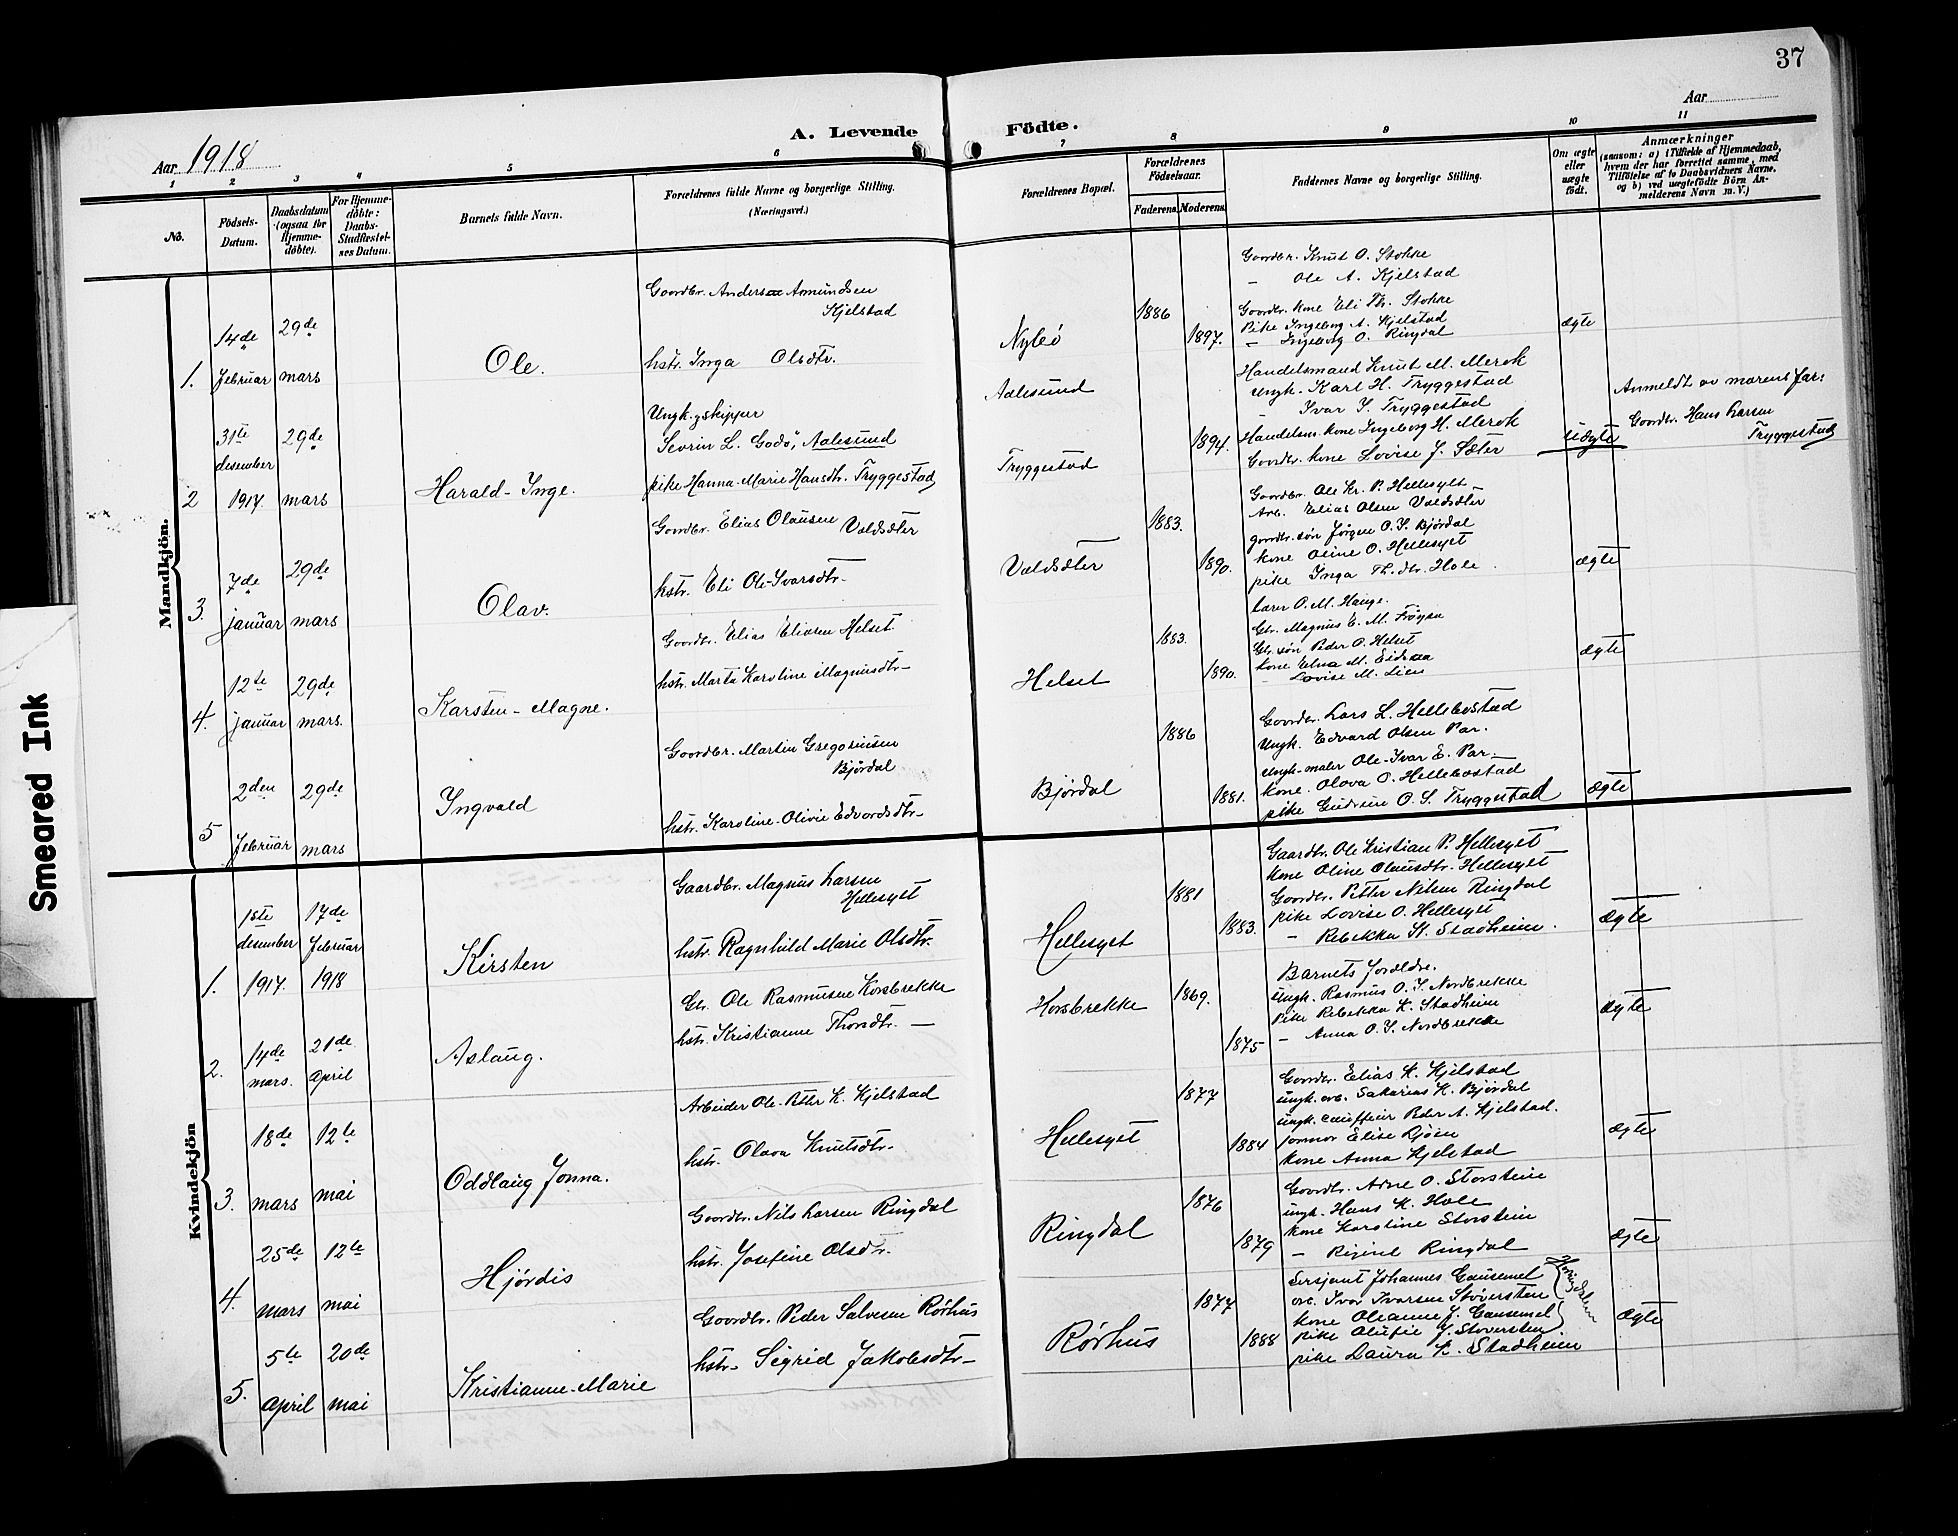 37
A. Levende Födte.
Aar 1918
Aar
1 2 3 4 5 6 7 8 9 10 11
No.
Födsels-Datum.
Daabsdatum (ogsaa for Hjemme-döbte).
For Hjemme-döbte: Daabs-Stadfæstel-ses Datum.
Barnets fulde Navn.
Forældrenes fulde Navne og borgerlige Stilling.
(Næringsvei.)
Forældrenes Bopæl.
Forældrenes Födselsaar.
Faderens. Moderens.
Faddernes Navne og borgerlige Stilling.
Om ægte eller uægte födt.
Anmærkninger
(saasom: a) i Tilfælde af Hjemmedaab,
hvem der har forrettet samme, med
Tilföielse af to Daabsvidners Navne,
og b) ved uægtefödte Börn An-
melderens Navn m. V.)
Mandkjön.
1. 14de februar
29de mars
Ole.
Gaardbr. Anders Asmundsen
Kjelstad
hstr. Inga Olsdtr.
Nylei
1886
1897.
Gaardbr. Knut O. Stokke
- Ole A. Kjelstad
Gaardbr. kone Eli Th. Stokke
Pike Ingeborg A. Kjelstad
- Ingeborg O. Ringdal
ægte
2 31te desember 1917.
29de mars
Harald-Inge.
Ungk. skipper
Severin L. Godö, Aalesund
pike Hanna-Marie Hansdtr. Tryggestad
Aalesund
Tryggestad
1894.
Handelsmand Knut M. Merok
ungk. Karl H. Tryggestad
- Ivar I. Tryggestad
Handelsm. kone Ingeborg H. Merok
Gaardbr. kone Lovise J. Sæter
uægte
Anmeldt av morens far:
Gaardbr. Hans Larsen
Tryggestad
3. 7de januar
29de mars
Olav.
Gaardbr. Elias Olausen Valdsæter
hstr. Eli Ole-Ivarsdtr.
Valdsæter
1883.
1890.
Gaardbr. Ole Kr. P. Hellesylt
Arb. Elias Olsen Valdsæter
gaardbr. sön Jörgen O. S. Björdal
kone Oline O. Hellesylt
pike Inga Th.dtr. Hole
4. 12te januar
29de mars.
Karsten-Magne.
Gaardbr. Elias Eliasen Helset
hstr. Marta Karoline Magnusdtr.
Helset
1883.
1890.
ægte
Lærer O. M. Hauge.
Gbr. Magnus E. M. Fröysa
Gbr. sön Peder O. Helset
kone Elna M. Eidsaa
- Lovise M. Lien
ægte
5 2den februar
29de mars
Ingvald
Gaardbr. Martin Gregoriusen
Björdal
hstr. Karoline-Olivie Edvardsdtr.
Björdal
1886
1881.
Gaardbr. Lars L. Hellebostad
Ungk. Edvard Olsen Par.
Ungk. maler Ole-Ivar E. Par.
kone. Olava O. Hellebostad
pike Gudrun O. S. Tryggestad
ægte
Kvindekjön
1. 1ste desember 1917.
17de februar 1918
Kirsten
Gaardbr. Magnus Larsen
Hellesylt
hstr. Ragnhild Marie Olsdtr.
Hellesylt
1881
1883.
Gaardbr. Ole Kristian P. Hellesylt
kone Oline Olausdtr. Hellesylt
Gaardbr. Petter Nilsen Ringdal
pike Lovise O. Hellesylt
- Rebekka K. Stadheim.
ægte
2. 14de mars.
21de april
Aslaug.
Gbr. Ole Rasmusen Korsbrekke
hstr. Kristianne Thorsdtr.
Korsbrekke
1869.
1875
Barnets forældre.
ungk. Rasmus O. I. Nordbrekke
Pike Rebekka K. Stadheim
- Anna O. I. Nordbrekke
ægte
3. 18de mars
12te mai
Oddlaug Jonna.
Arbeider Ole-Petter K. Kjelstad
hstr. Olava Knutsdtr.
Hellesylt
1877
1884
Gaardbr. Elias K. Kjelstad
ungk. arb. Sakarias K. Björdal
ungk. Peder A. Kjelstad.
jormor Elise
kone Anna Kjelstad
ægte
4. 25de mars
12te mai
Hjördis
Gaardbr. Nils Larsen Ringdal
hstr. Josefine Olsdtr.
Ringdal
1876
1879
Gaardbr. Arne O. Storstein
ungk. Hans K. Hole
kone Karoline Storstein
- Ringdal
ægte
5. 5te april
20de mai
Kristianne-Marie
Gaardbr. Peder Salvesen Rörhus
hstr. Sigrid Jakobsdtr.
Rörhus
1877
1888
Sersjant Johannes Gausemel
arb. Ivar Ivarsen Stöversten
kone Oleanne J. Gausemel
pike Olufie J. Stöversten
pike Laura K. Stadheim
ægte
Smeared Ink